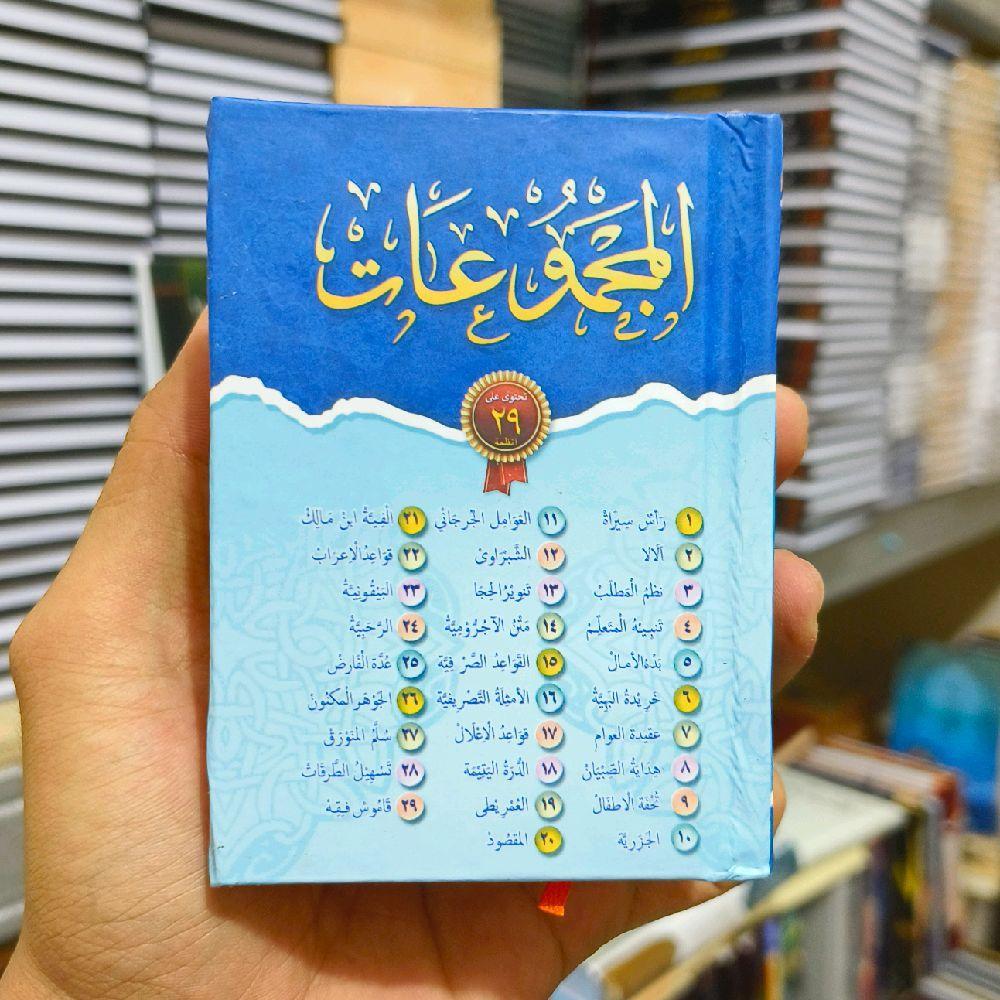 المجموعات
تحتوى على
٢٩
انظمة
١ رَأْسْ سِيْرَاهْ
٢ آلَالَا
٣ نَظْمُ الْمَطْلَبْ
٤ تَنْبِيْهُ الْمُتَعَلِّمْ
٥ بَدْءُالأمالْ
٦ خَرِيْدَةُ الْبَهِيَّةْ
٧ عقيدة العوام
٨ هِدَايَةُ الصِّبْيَانْ
٩ تُحْفَةُ الْاَطْفَالُ
١٠ الجَزَرِيَّه
١١ العَوَامِل الجُرجَانِي
١٢ الشَّبْرَاوِى
١٣ تَنْوِيْرُالحِجَا
١٤ مَتْنُ الآجُرُوْمِيَّةْ
١٥ القَوَاعِدُ الصَّرْفِيَّةْ
١٦ الأَمْثِلَةُ التَّصْرِيْفِيَّةْ
١٧ قَوَاعِدُ الْاِعْلَالْ
١٨ الدُّرَةُ اليَتِيْمَة
١٩ العُمْرِيْطِى
٢٠ المَقْصُودْ
٢١ اَلْفِيَّةُ ابنِ مَالِكْ
٢٢ قَوَاعِدُ الْاِعْرَابْ
٢٣ البَيْقُونِيَّةْ
٢٤ الرَّحَبِيَّةْ
٢٥ عُدَّةُ الْفَارِضْ
٢٦ الجَوْهَرالْمَكْنُونْ
٢٧ سُلَّمُ الْمَنَوْرَقْ
٢٨ تَسْهِيْلُ الطُّرُقَاتْ
٢٩ قَامُوسْ فِيْقِه